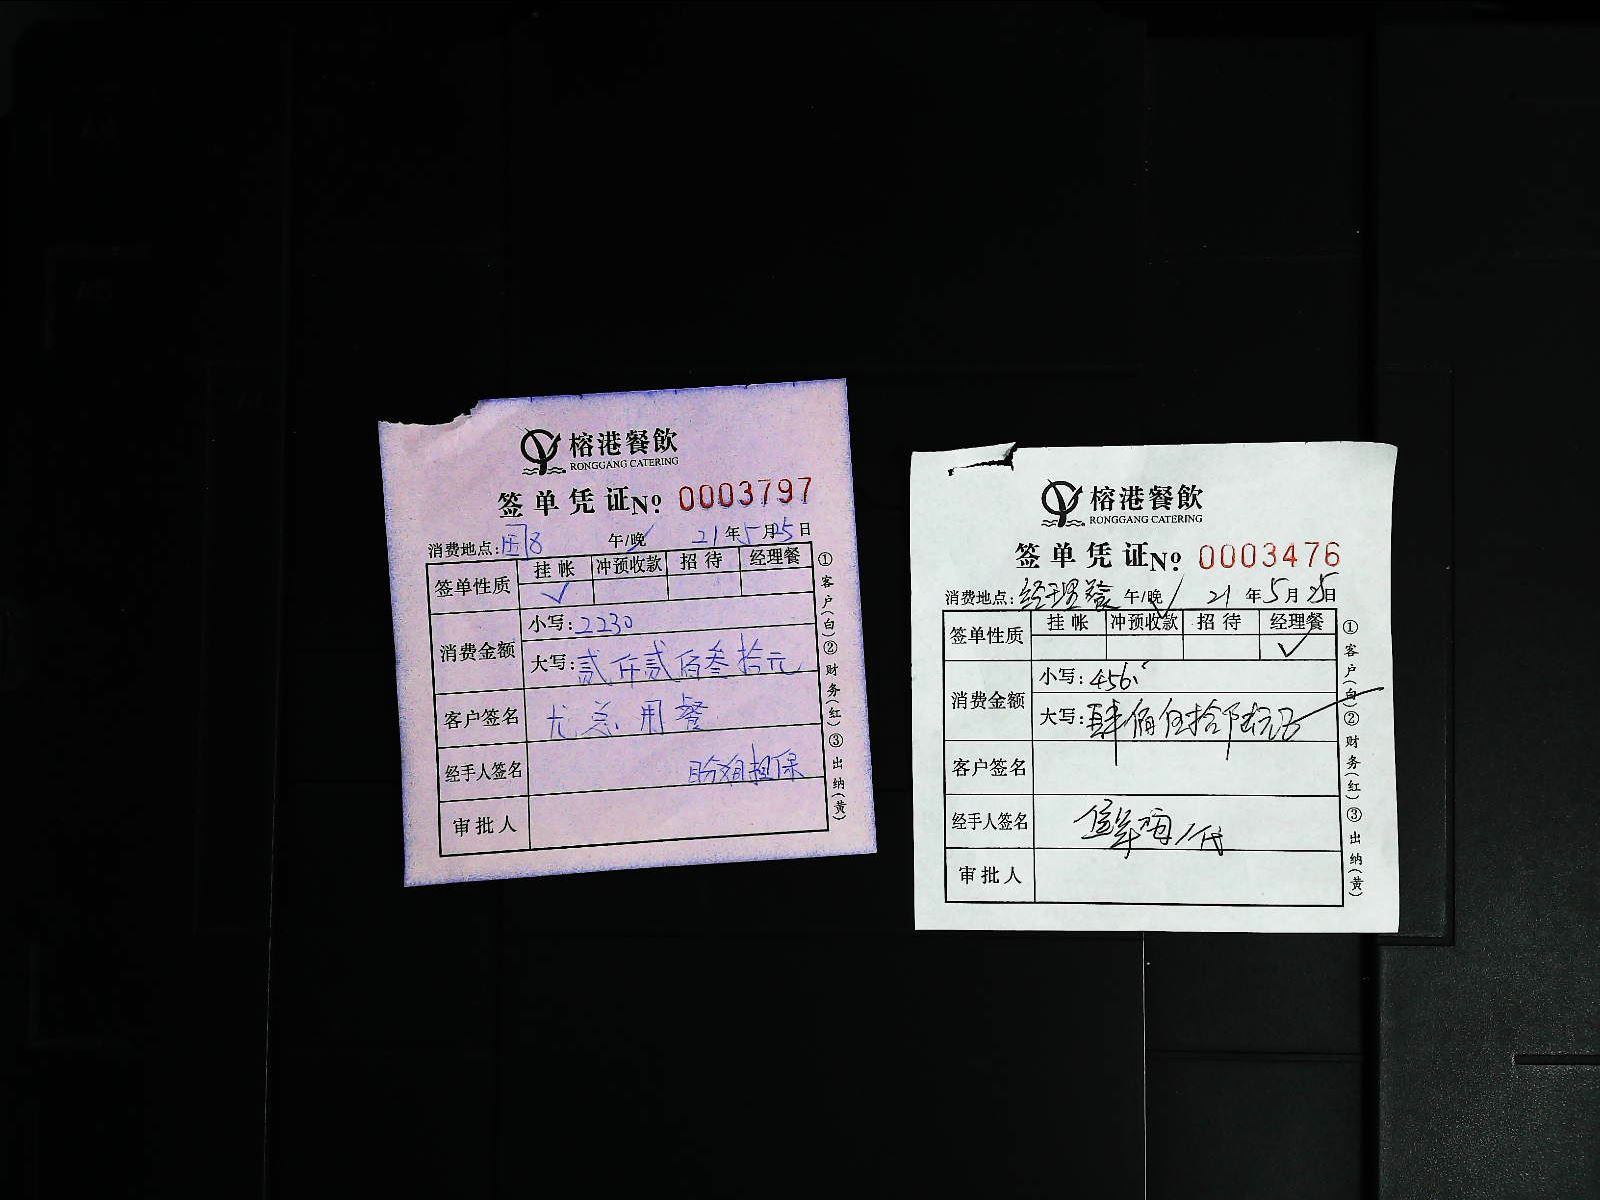 榕港餐飲
RONGGANG CATERING
签单凭证No: 0003797
消费地点: 午/晚 21年5月25日
签单性质 挂帐 冲预收款 招待 经理餐
✓
消费金额 小写:2230
大写:贰仟贰佰叁拾元
客户签名 尤总用餐
经手人签名 担保
审批人
①客户(白)②财务(红)③出纳(黄)
榕港餐飲
RONGGANG CATERING
签单凭证No: 0003476
消费地点:经理餐 午/晚 21年5月25日
签单性质 挂帐 冲预收款 招待 经理餐
✓
消费金额 小写:456
大写:肆佰伍拾陆元正
客户签名
经手人签名 /代
审批人
①客户(白)②财务(红)③出纳(黄)